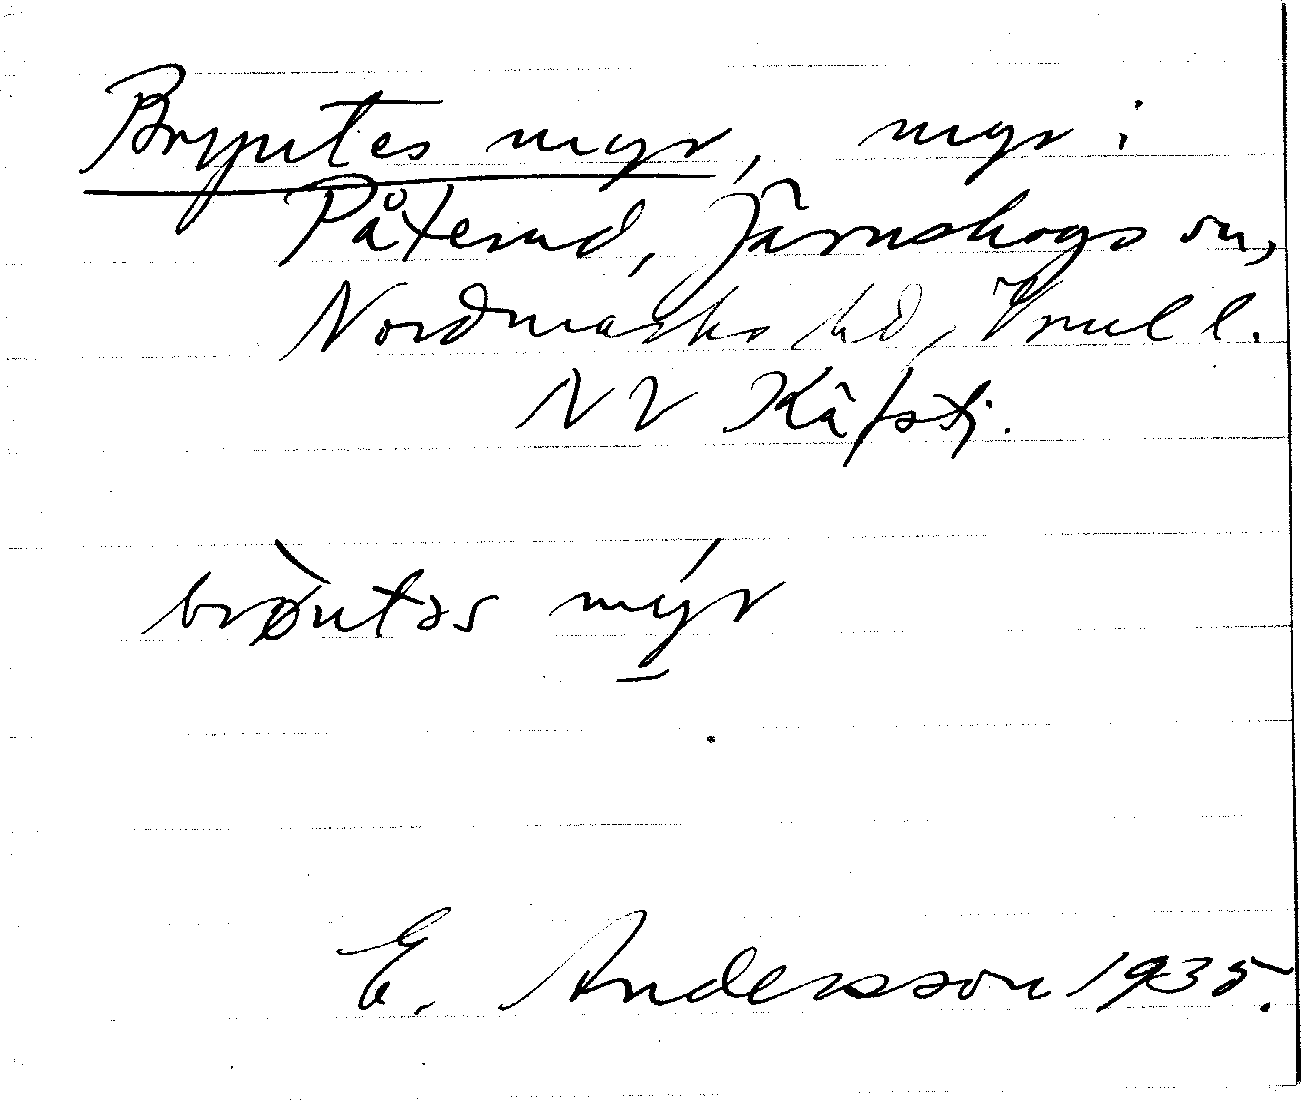 Bryntes myr, myr i
Påterud, Järnskogs sn,
Nordmarks hd, Vrml l.
NV Kålstj.
brøntəs myr
E. Andersson 1935.